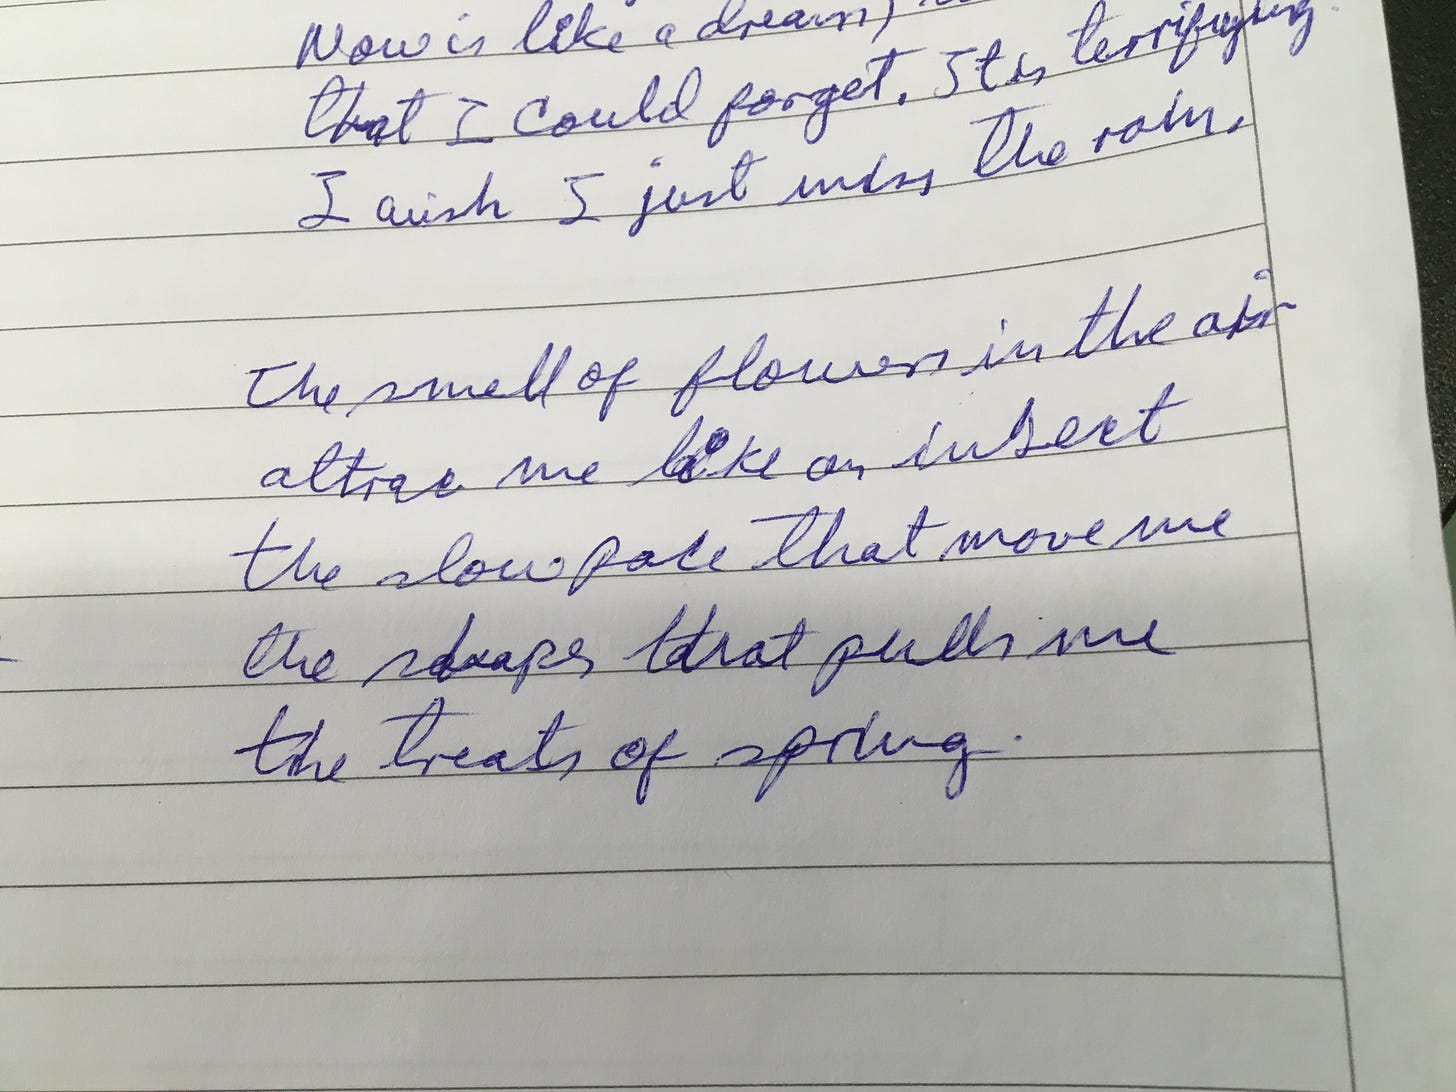 Now is like a dream,
that I could forget. It is terrifying.
I wish I just miss the rain.
the smell of flowers in the air
attrac me like an insect
the slow pace that move me
the shapes that pulls me
the treats of spring.